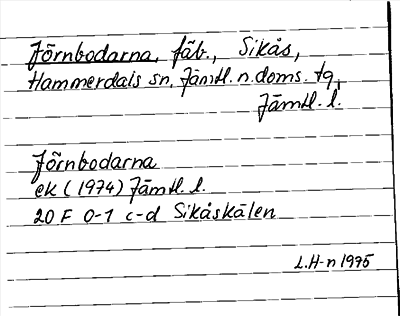 Jörnbodarna, fäb., Sikås,
Hammerdals sn, Jämtl. n. doms. tg,
Jämtl. l.
Jörnbodarna
ek (1974) Jämtl. l.
20 F 0-1 c-d Sikåskälen
L.H-n 1975